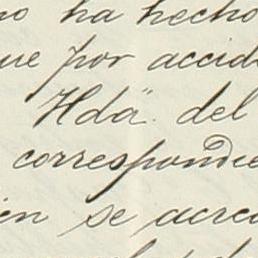 no ha hecho
ue por accid
Hda. del
correspondie
ien se acre